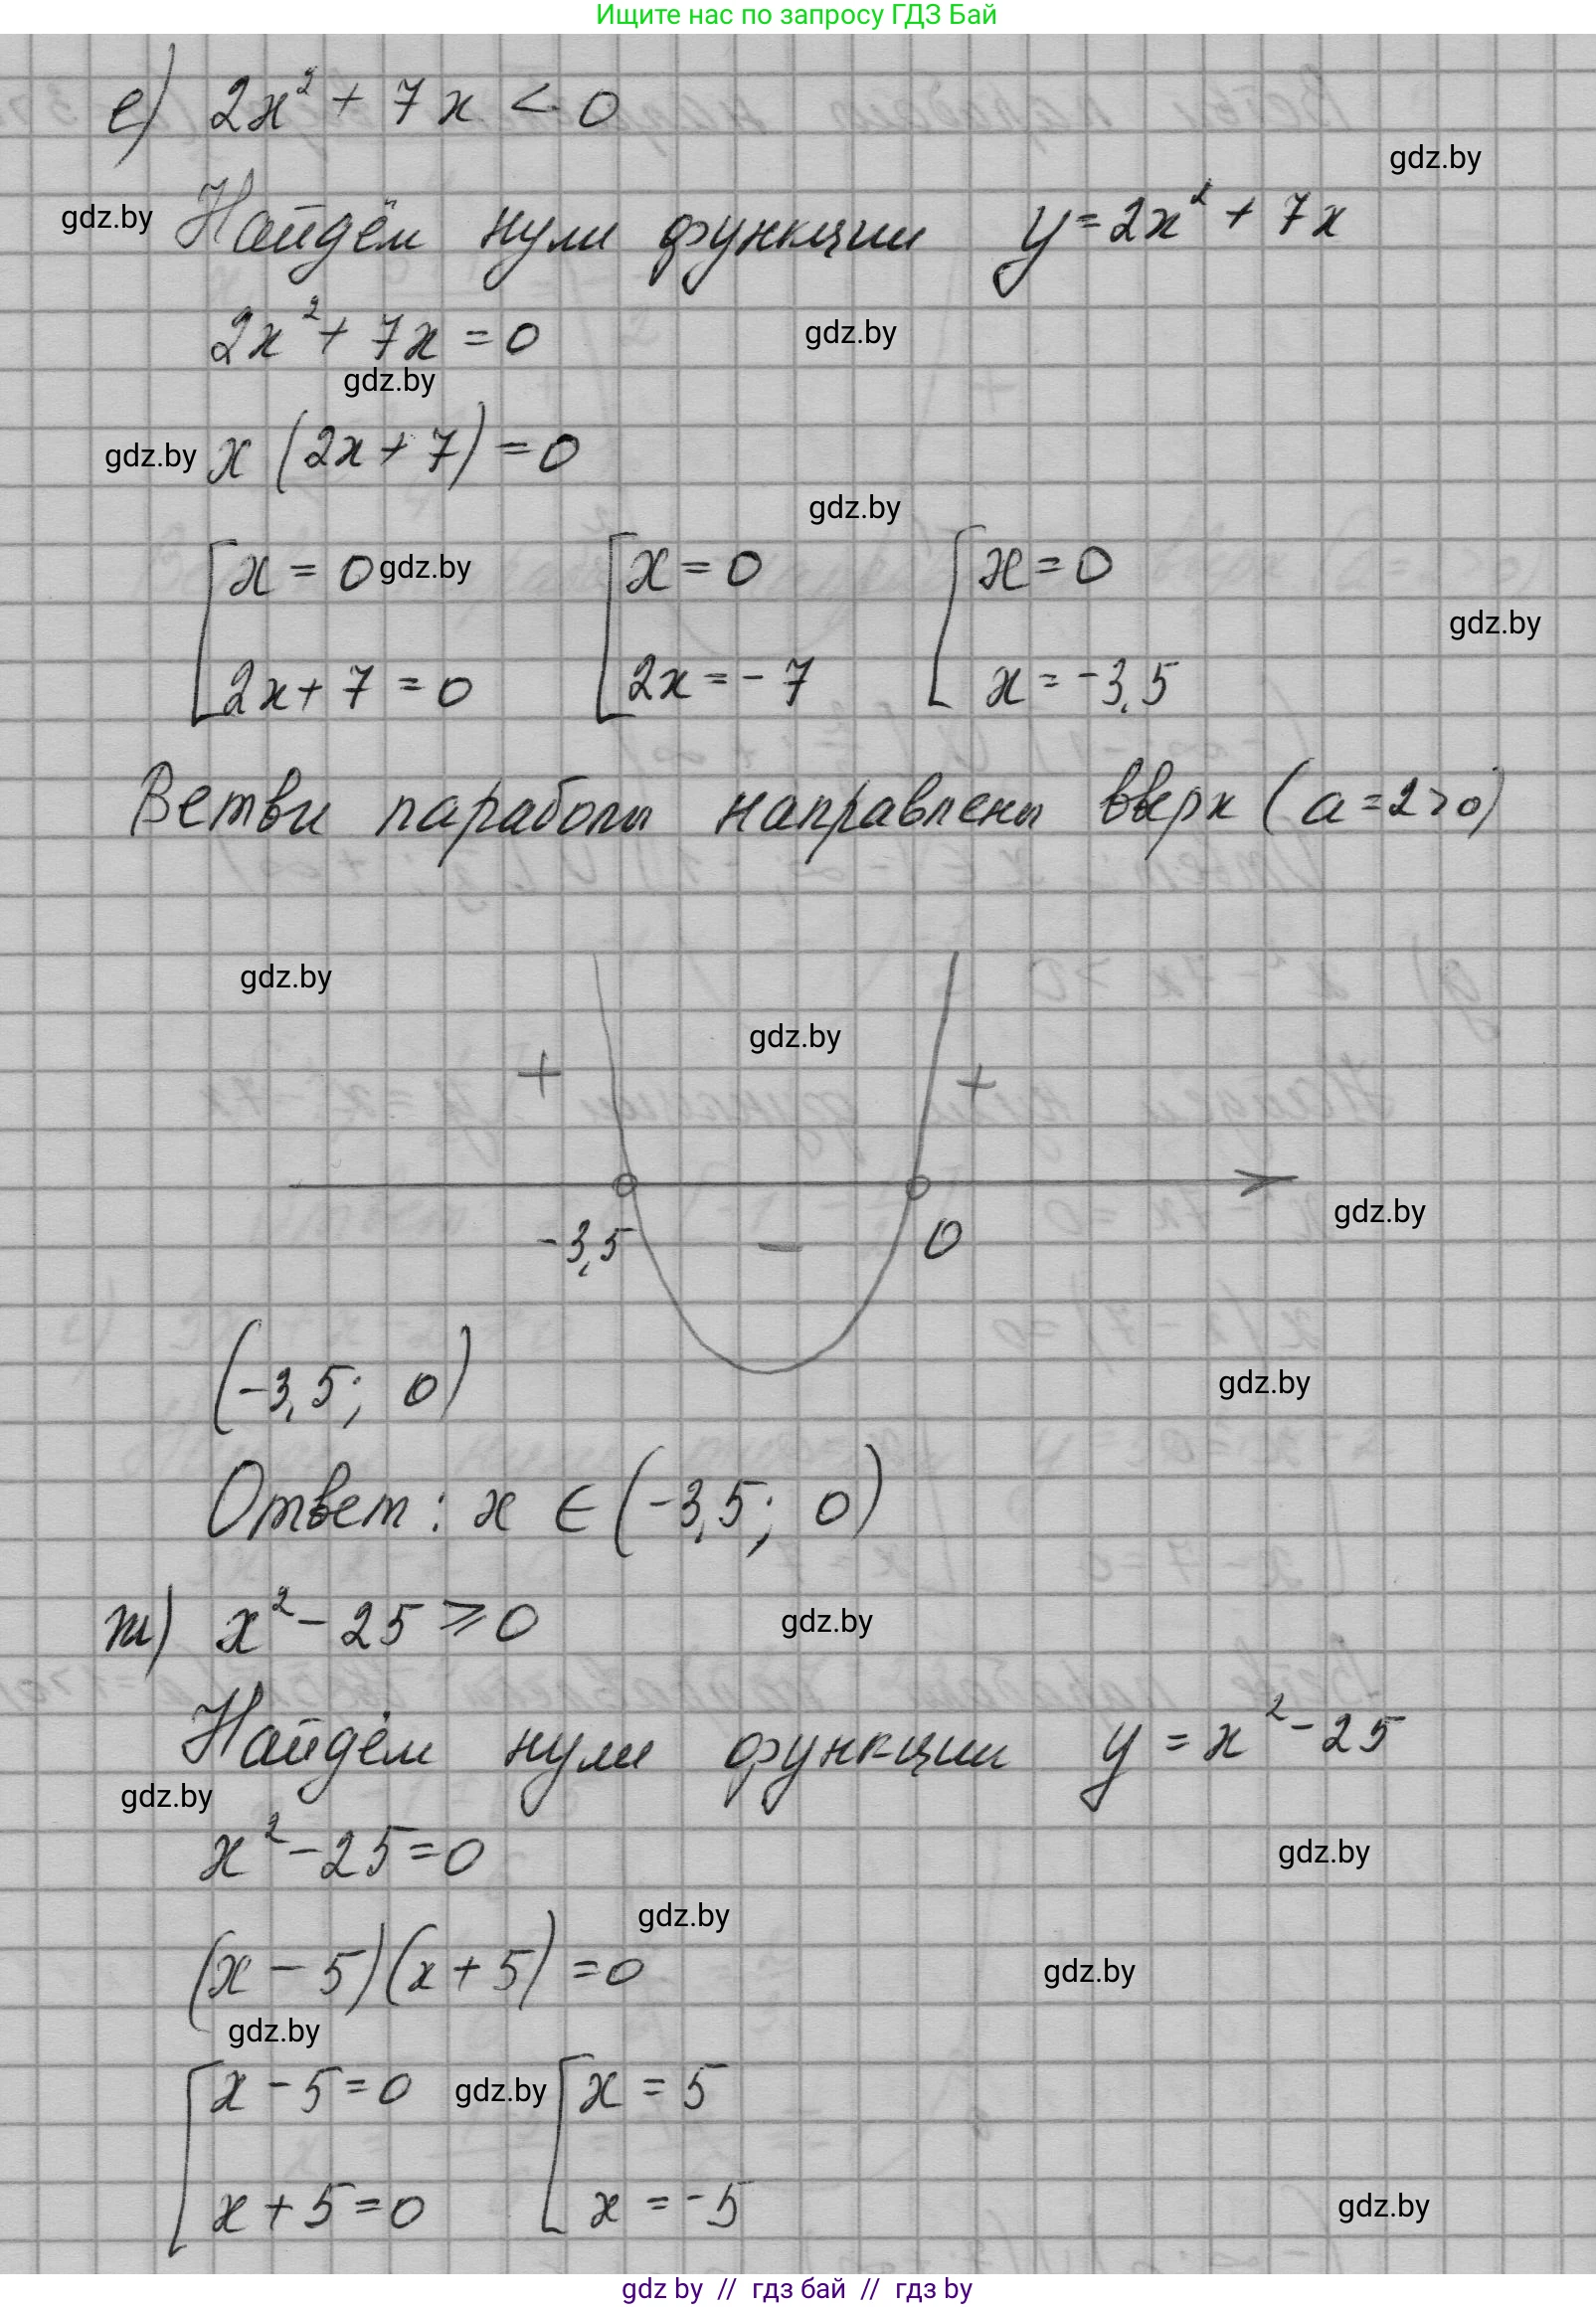 Ищите нас по запросу ГДЗ Бай
е) 2x² + 7x < 0
gdz.by
gdz.by
Найдём нули функции y = 2x² + 7x
2x² + 7x = 0
gdz.by
gdz.by
gdz.by
x (2x + 7) = 0
gdz.by
[x = 0 gdz.by [x = 0 [x = 0
gdz.by
2x + 7 = 0 2x = -7 x = -3,5
Ветви параболы направлены вверх (a = 2 > 0)
gdz.by
gdz.by
+ +
gdz.by
-3,5 - 0
(-3,5; 0)
gdz.by
Ответ: x ∈ (-3,5; 0)
ж) x² - 25 ⩾ 0
gdz.by
Найдём нули функции y = x² - 25
gdz.by
x² - 25 = 0
gdz.by
gdz.by
(x - 5)(x + 5) = 0
gdz.by
gdz.by
[x - 5 = 0 gdz.by [x = 5
x + 5 = 0 x = -5
gdz.by
gdz by // гдз бай // гдз by